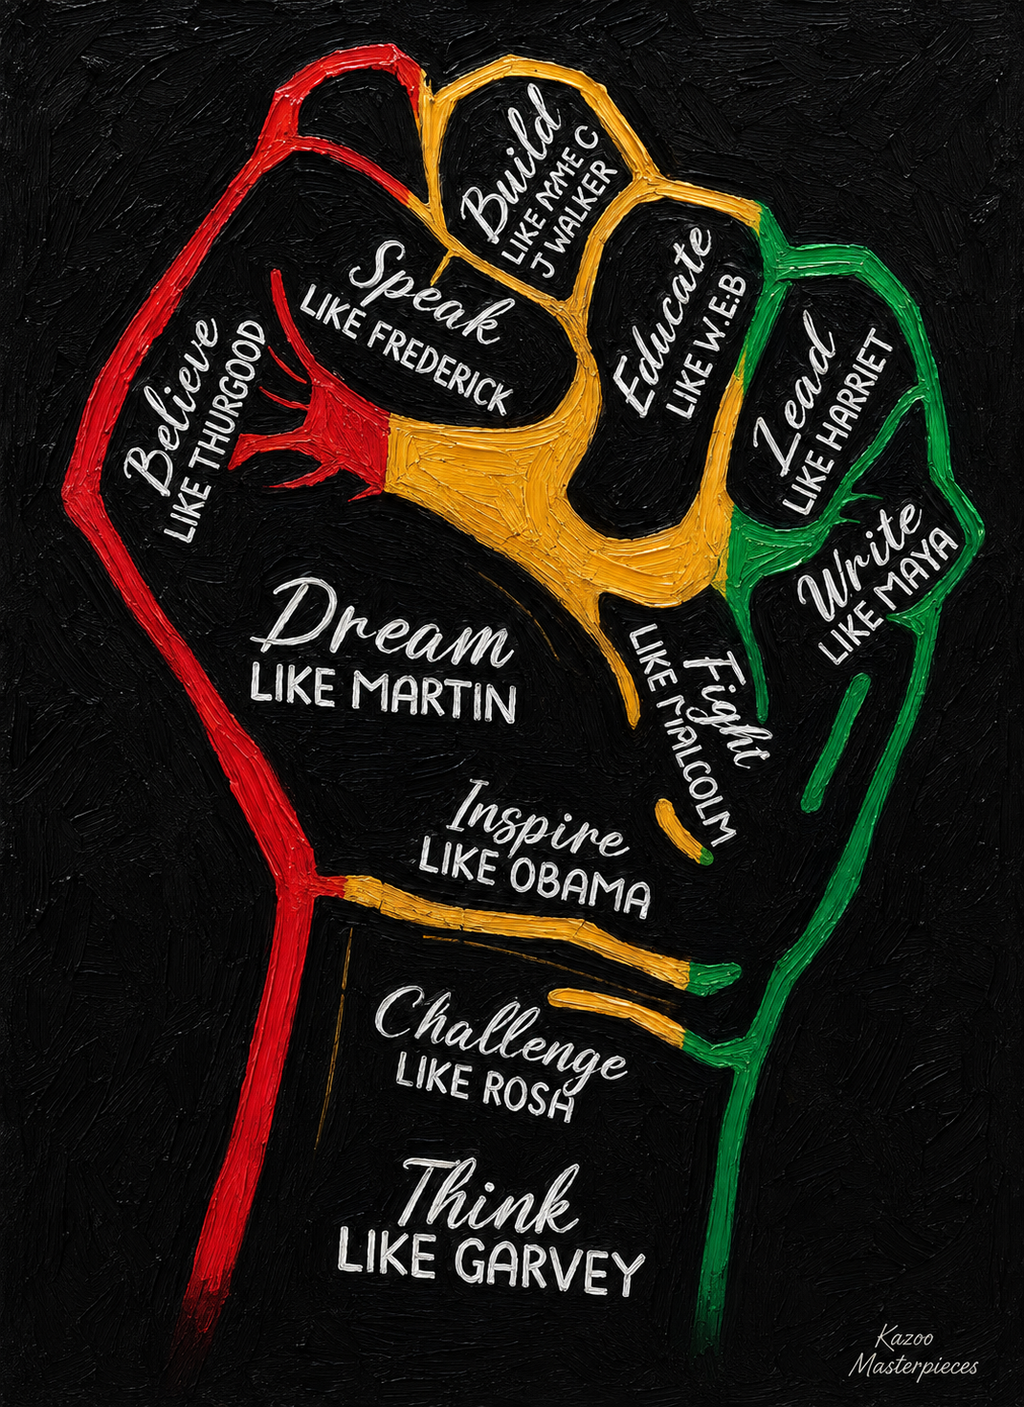 Build
LIKE
C
J WALKER
Speak
LIKE FREDERICK
Educate
LIKE W.E.B
Believe
LIKE THURGOOD
Lead
LIKE HARRIET
Write
LIKE MAYA
Dream
LIKE MARTIN
Fight
LIKE
Inspire
LIKE OBAMA
Challenge
LIKE ROSA
Think
LIKE GARVEY
Kazoo
Masterpieces